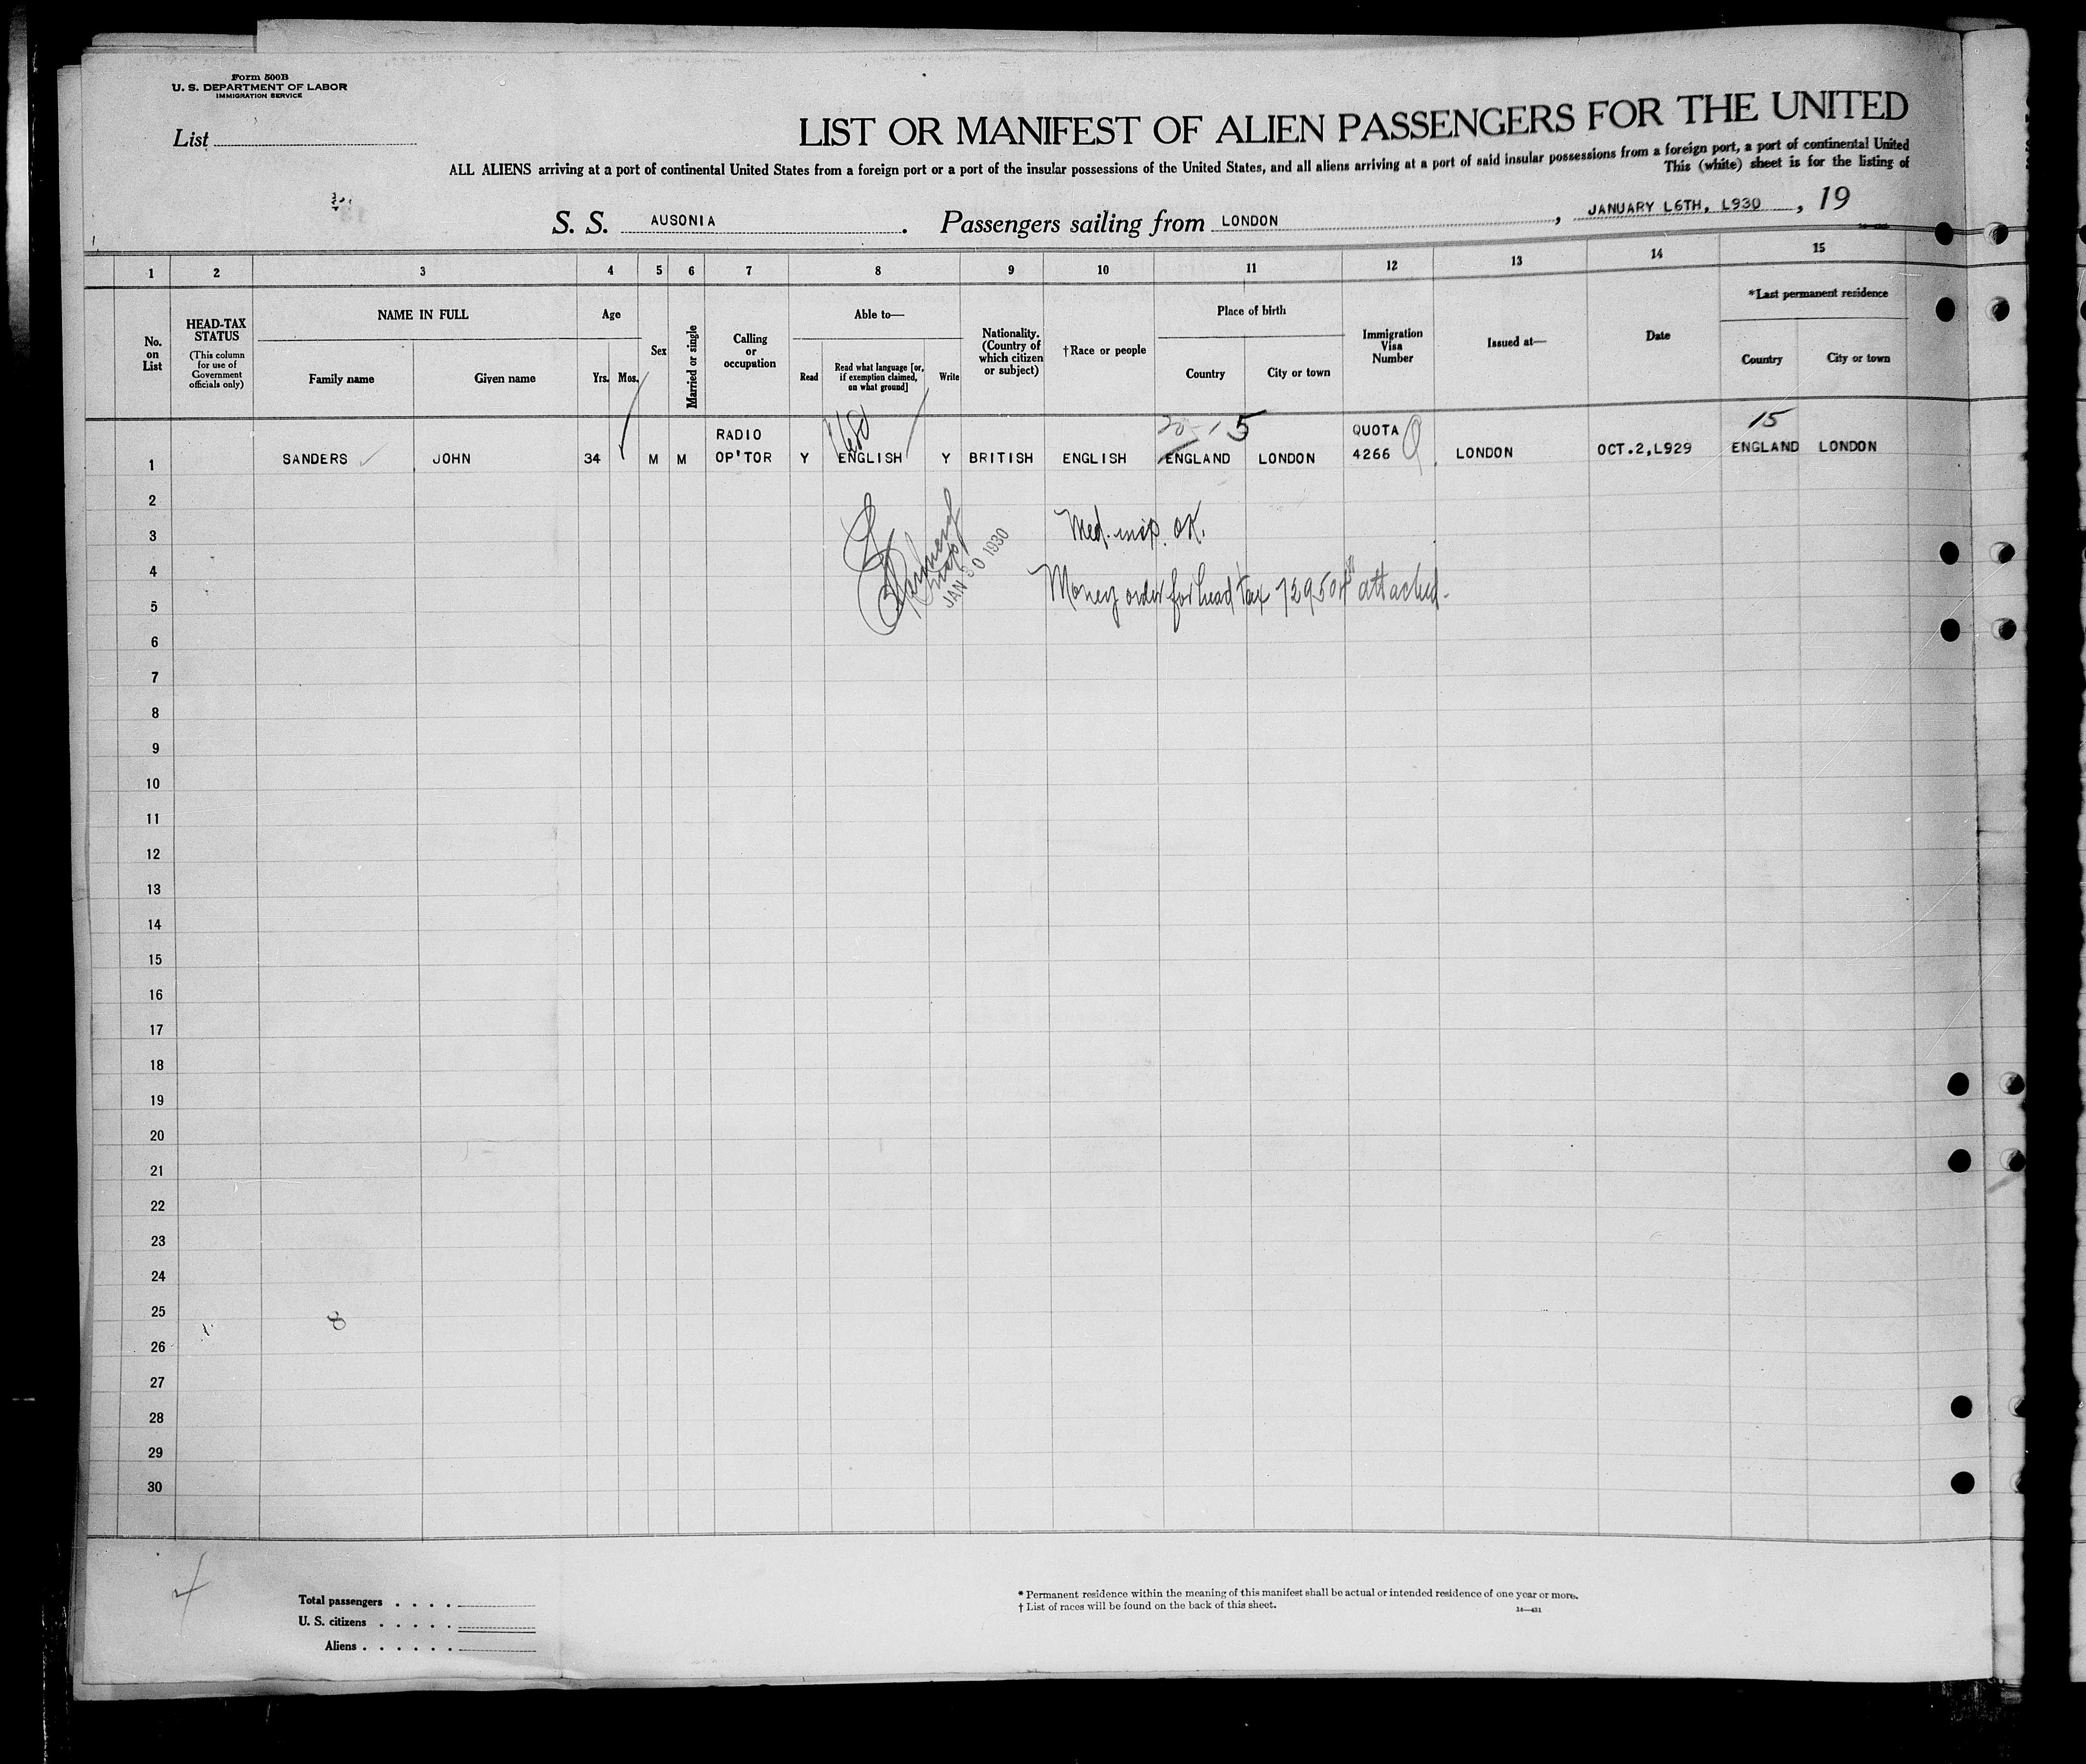 Form 500B
U. S. DEPARTMENT OF LABOR
IMMIGRATION SERVICE
List
LIST OR MANIFEST OF ALIEN PASSENGERS FOR THE UNITED
ALL ALIENS arriving at a port of continental United States from a foreign port or a port of the insular possessions of the United States, and all aliens arriving at a port of said insular possessions from a foreign port, a port of continental United
This (white) sheet is for the listing of
S. S. AUSONIA. Passengers sailing from LONDON, JANUARY L6TH, L930, 19
1 2 3 4 5 6 7 8 9 10 11 12 13 14 15
No. on List
HEAD-TAX STATUS
(This column for use of Government officials only)
NAME IN FULL
Family name
Given name
Age
Yrs.
Mos.
Sex
Married or single
Calling or occupation
Able to—
Read
Read what language [or, if exemption claimed, on what ground]
Write
Nationality. (Country of which citizen or subject)
†Race or people
Place of birth
Country
City or town
Immigration Visa Number
Issued at—
Date
*Last permanent residence
Country
City or town
15
1 SANDERS JOHN 34 M M RADIO OP'TOR Y ENGLISH Y BRITISH ENGLISH ENGLAND LONDON QUOTA 4266 Q LONDON OCT.2,L929 ENGLAND LONDON
2
3
Med. insp. OK.
4
JAN 30 1930
Money order for head tax attached.
5
6
7
8
9
10
11
12
13
14
15
16
17
18
19
20
21
22
23
24
25
8
26
27
28
29
30
Total passengers . . . .
U. S. citizens . . . . .
Aliens . . . . . .
* Permanent residence within the meaning of this manifest shall be actual or intended residence of one year or more.
† List of races will be found on the back of this sheet.
14—431